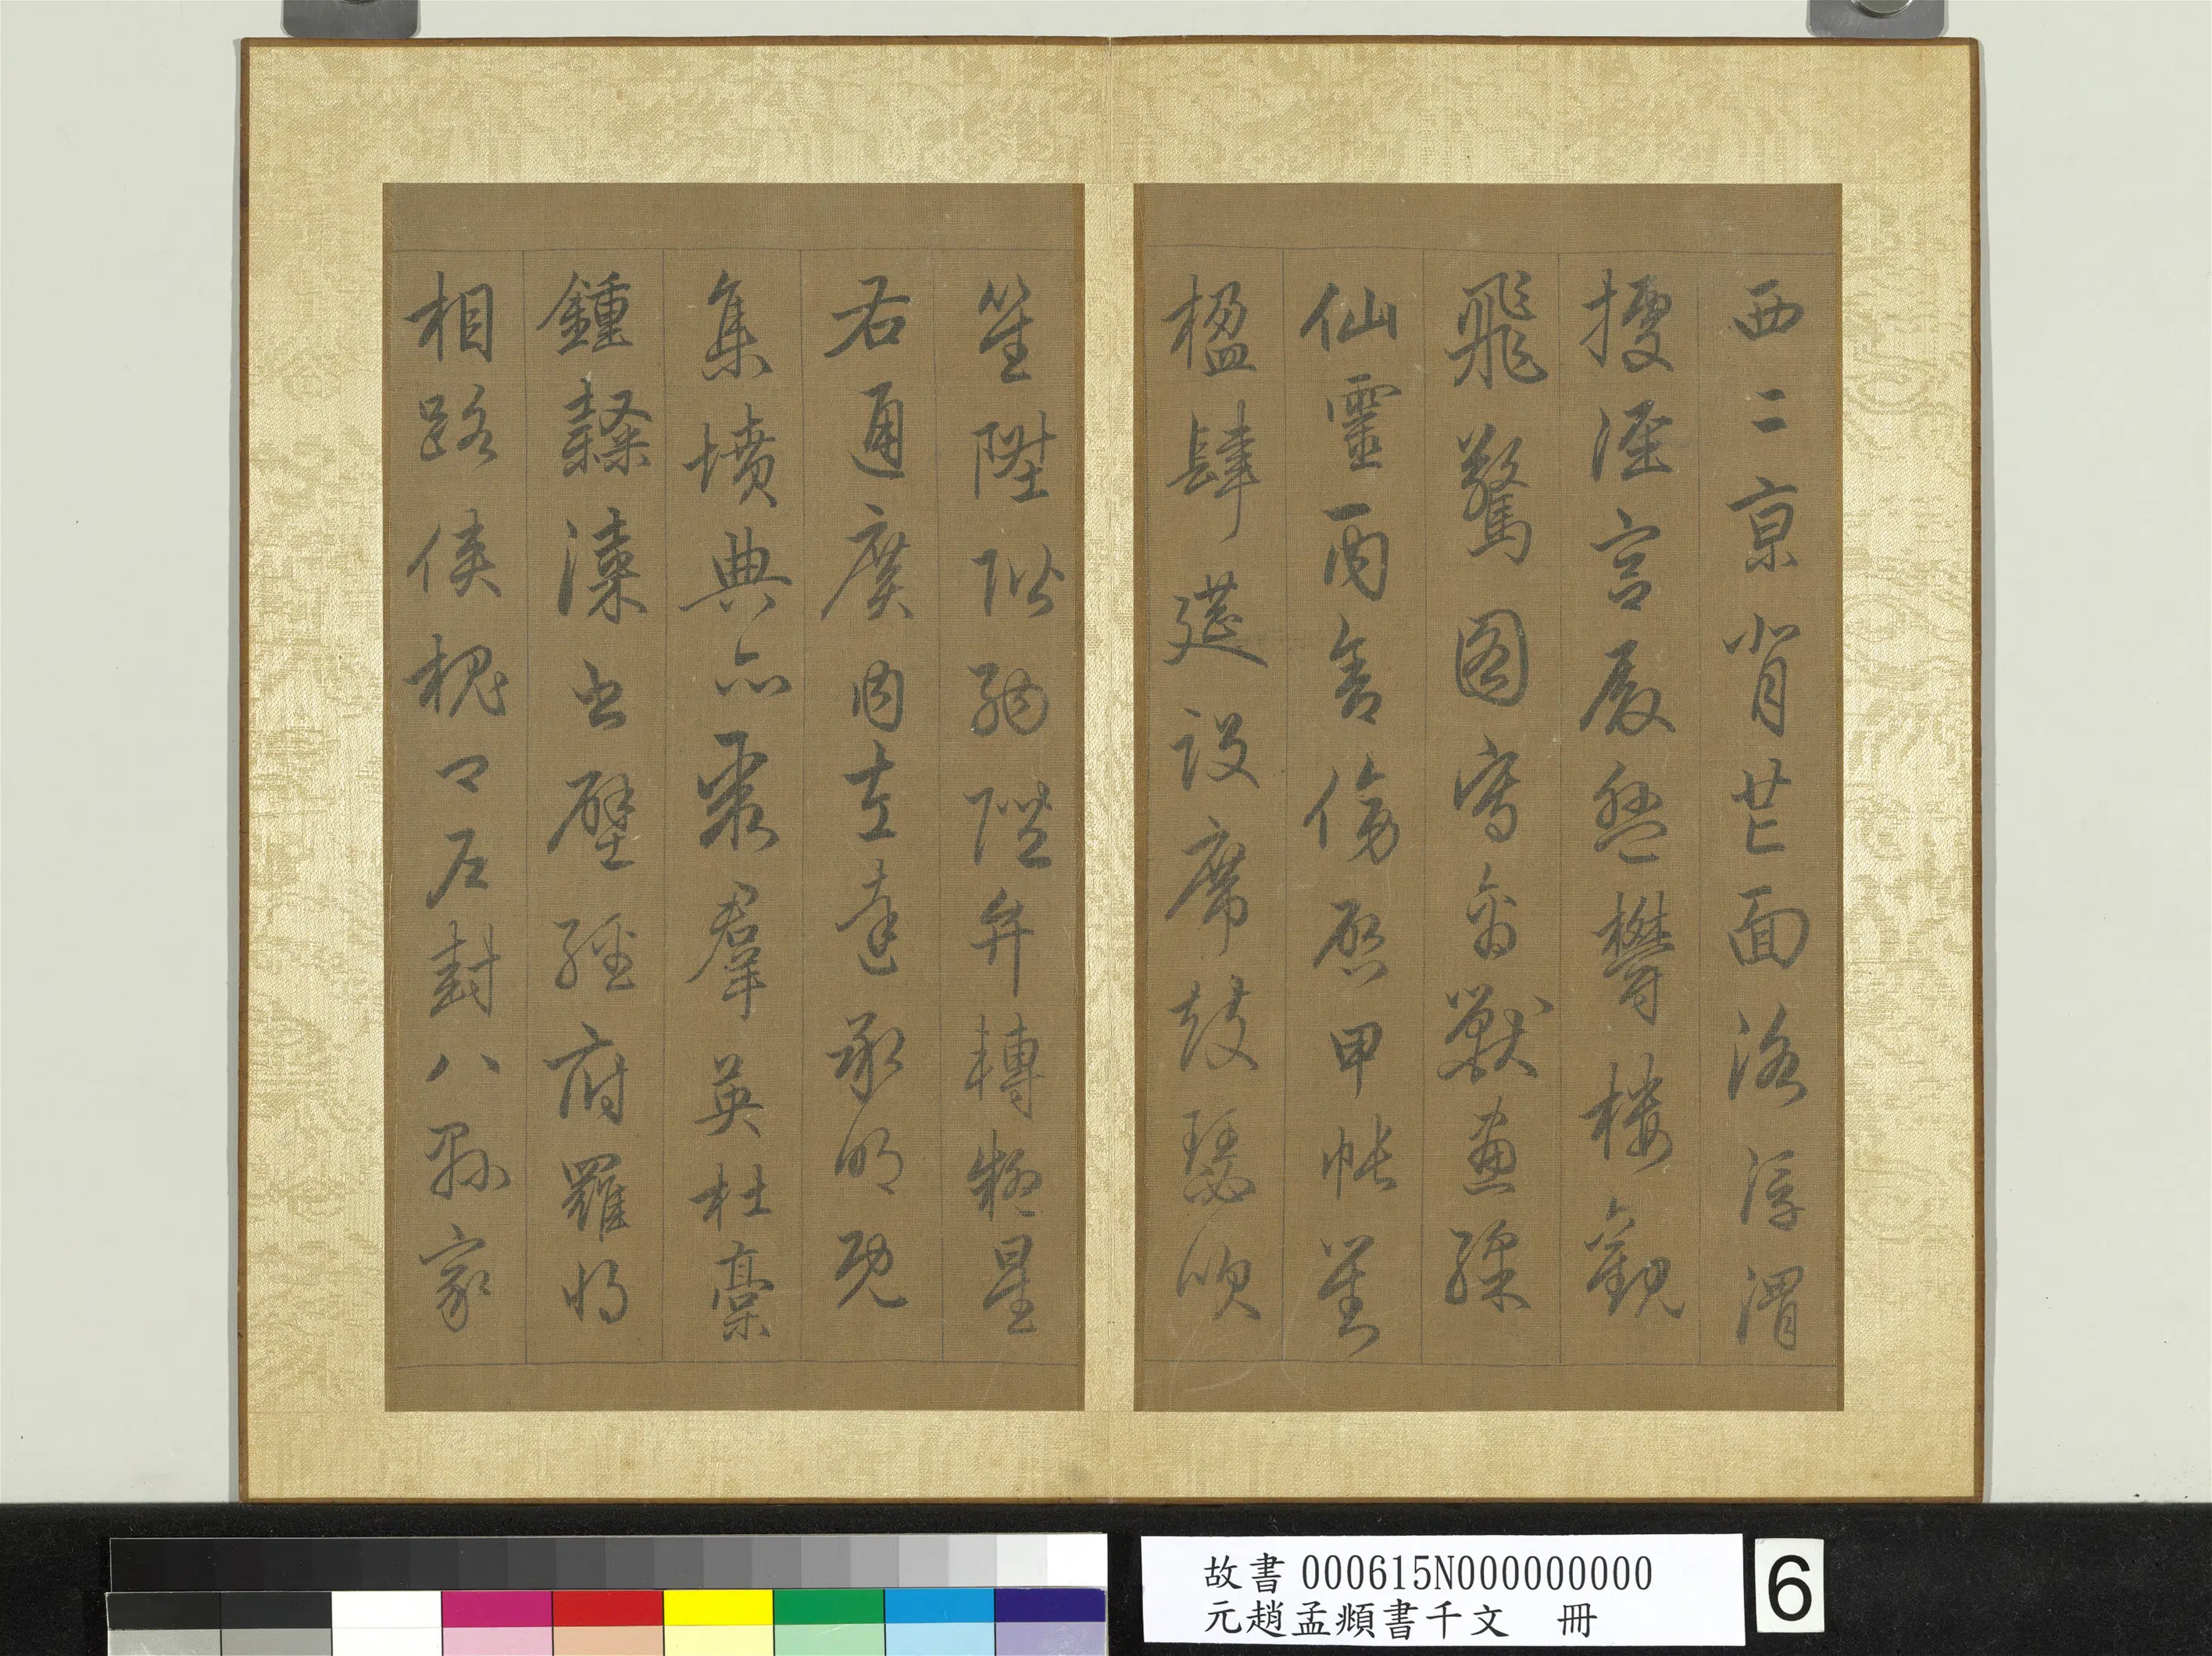 西二京背芒面洛浮渭
據涇宮殿盤欝樓觀
飛驚圖寫禽獸畫綵
仙靈丙舍傍啓甲帳對
楹肆筵設席鼓瑟吹
笙陞階納陛弁轉疑星
右通廣內左達承明既
集墳典亦聚羣英杜稾
鍾隸漆書壁經府羅將
相路俠槐卿戶封八縣家
故書 000615N000000000
元趙孟頫書千文 冊
6